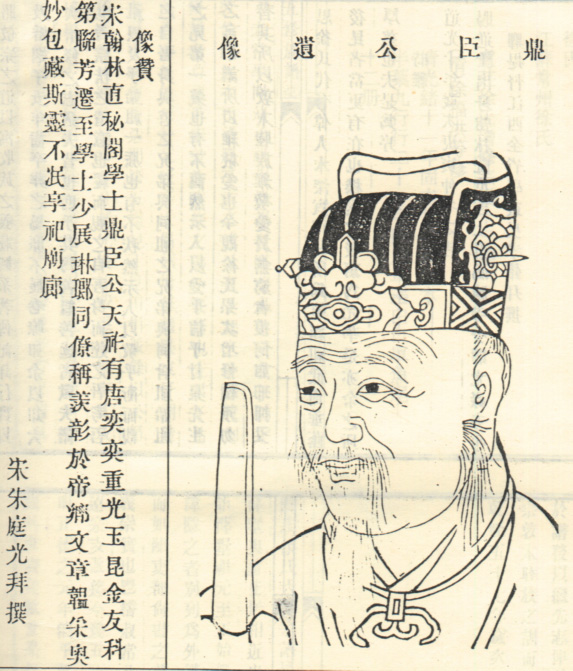 鼎臣公遺像
像贊
宋翰林直秘閣學士鼎臣公天祚有唐奕奕重光玉昆金友科
第聯芳遷至學士少展琳瑯同僚稱羨彰於帝鄉文章韞采奧
妙包藏斯靈不泯享祀廟廊
宋朱庭光拜撰